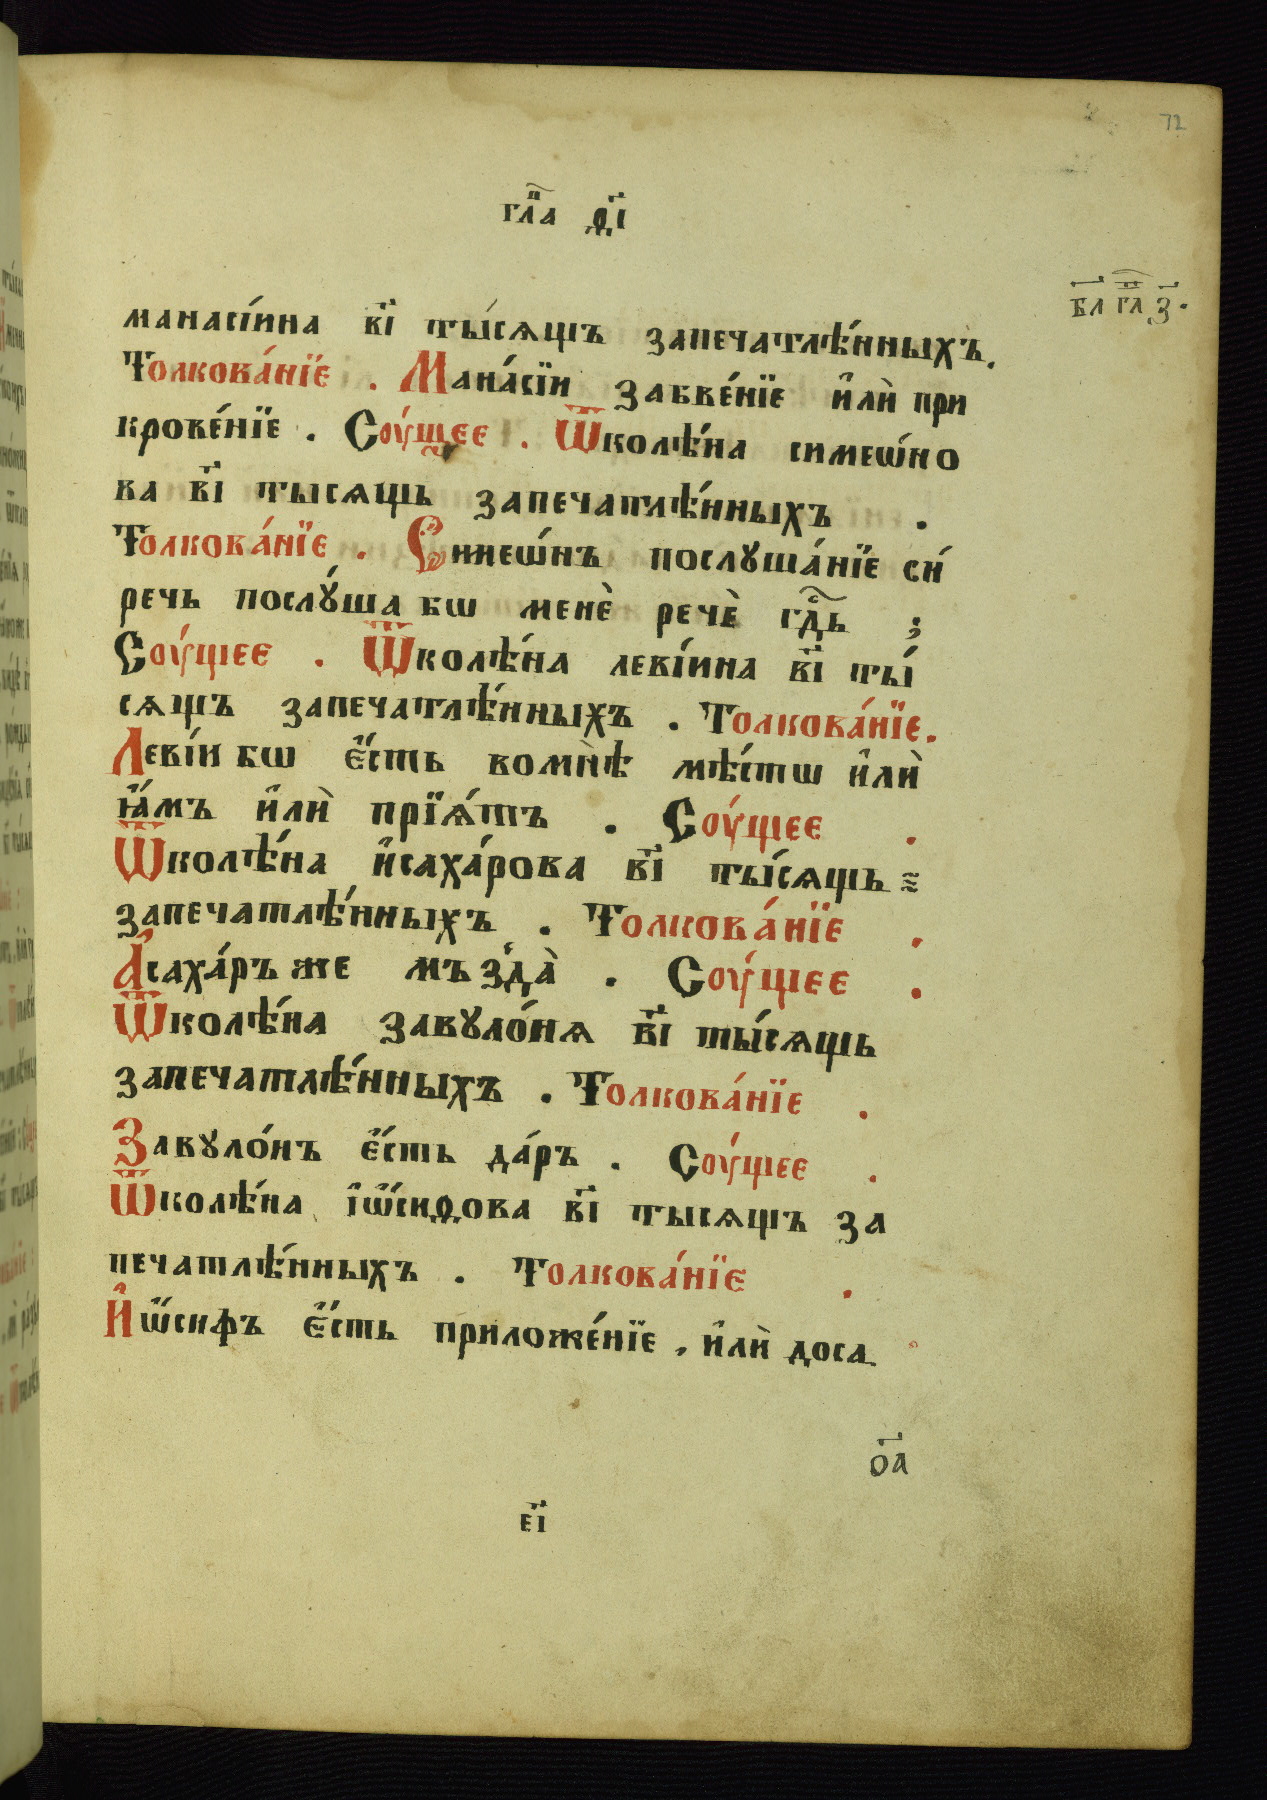 72
гла́ д҃і
бл гл з҃.
манасі́ина в҃і ты́сѧщъ запечатлѣ́нныхъ.
Толкова́нїе . Мана́сїи забве́нїе и҆лѝ при
крове́нїе . Соу́щее . Ѿколѣ́на симеѡ́но
ва в҃і тысѧщь запечатлѣ́нныхъ .
Толкова́нїе . Симеѡ́нъ послꙋша́нїе си́
речь послꙋ́ша бѡ менѐ речѐ гдⷭ҇ь ;
Соу́щее . Ѿколѣ́на леві́ина в҃і ты́
сѧщъ запечатлѣ́нныхъ . Толкова́нїе.
Леві́и бѡ є҆́сть вомнѣ̀ мѣ́стѡ и҆лѝ
ꙗ҆́мъ и҆лѝ прїѧ́тъ . Соу́щее .
Ѿколѣ́на и҆саха́рова в҃і ты́сѧщь
запечатлѣ́нныхъ . Толкова́нїе .
А҆саха́ръ же мъздà . Соу́щее .
Ѿколѣ́на завꙋло́нѧ в҃і ты́сѧщь
запечатлѣ́нныхъ . Толкова́нїе .
Завꙋло́нъ є҆́сть да́ръ . Соу́щее .
Ѿколѣ́на і҆ѡ҆́сидова в҃і тысѧщъ за
печатлѣ́нныхъ . Толкова́нїе .
И҆ѡ҆́сифъ є҆́сть приложе́нїе , и҆лѝ доса
о҃а
є҃і